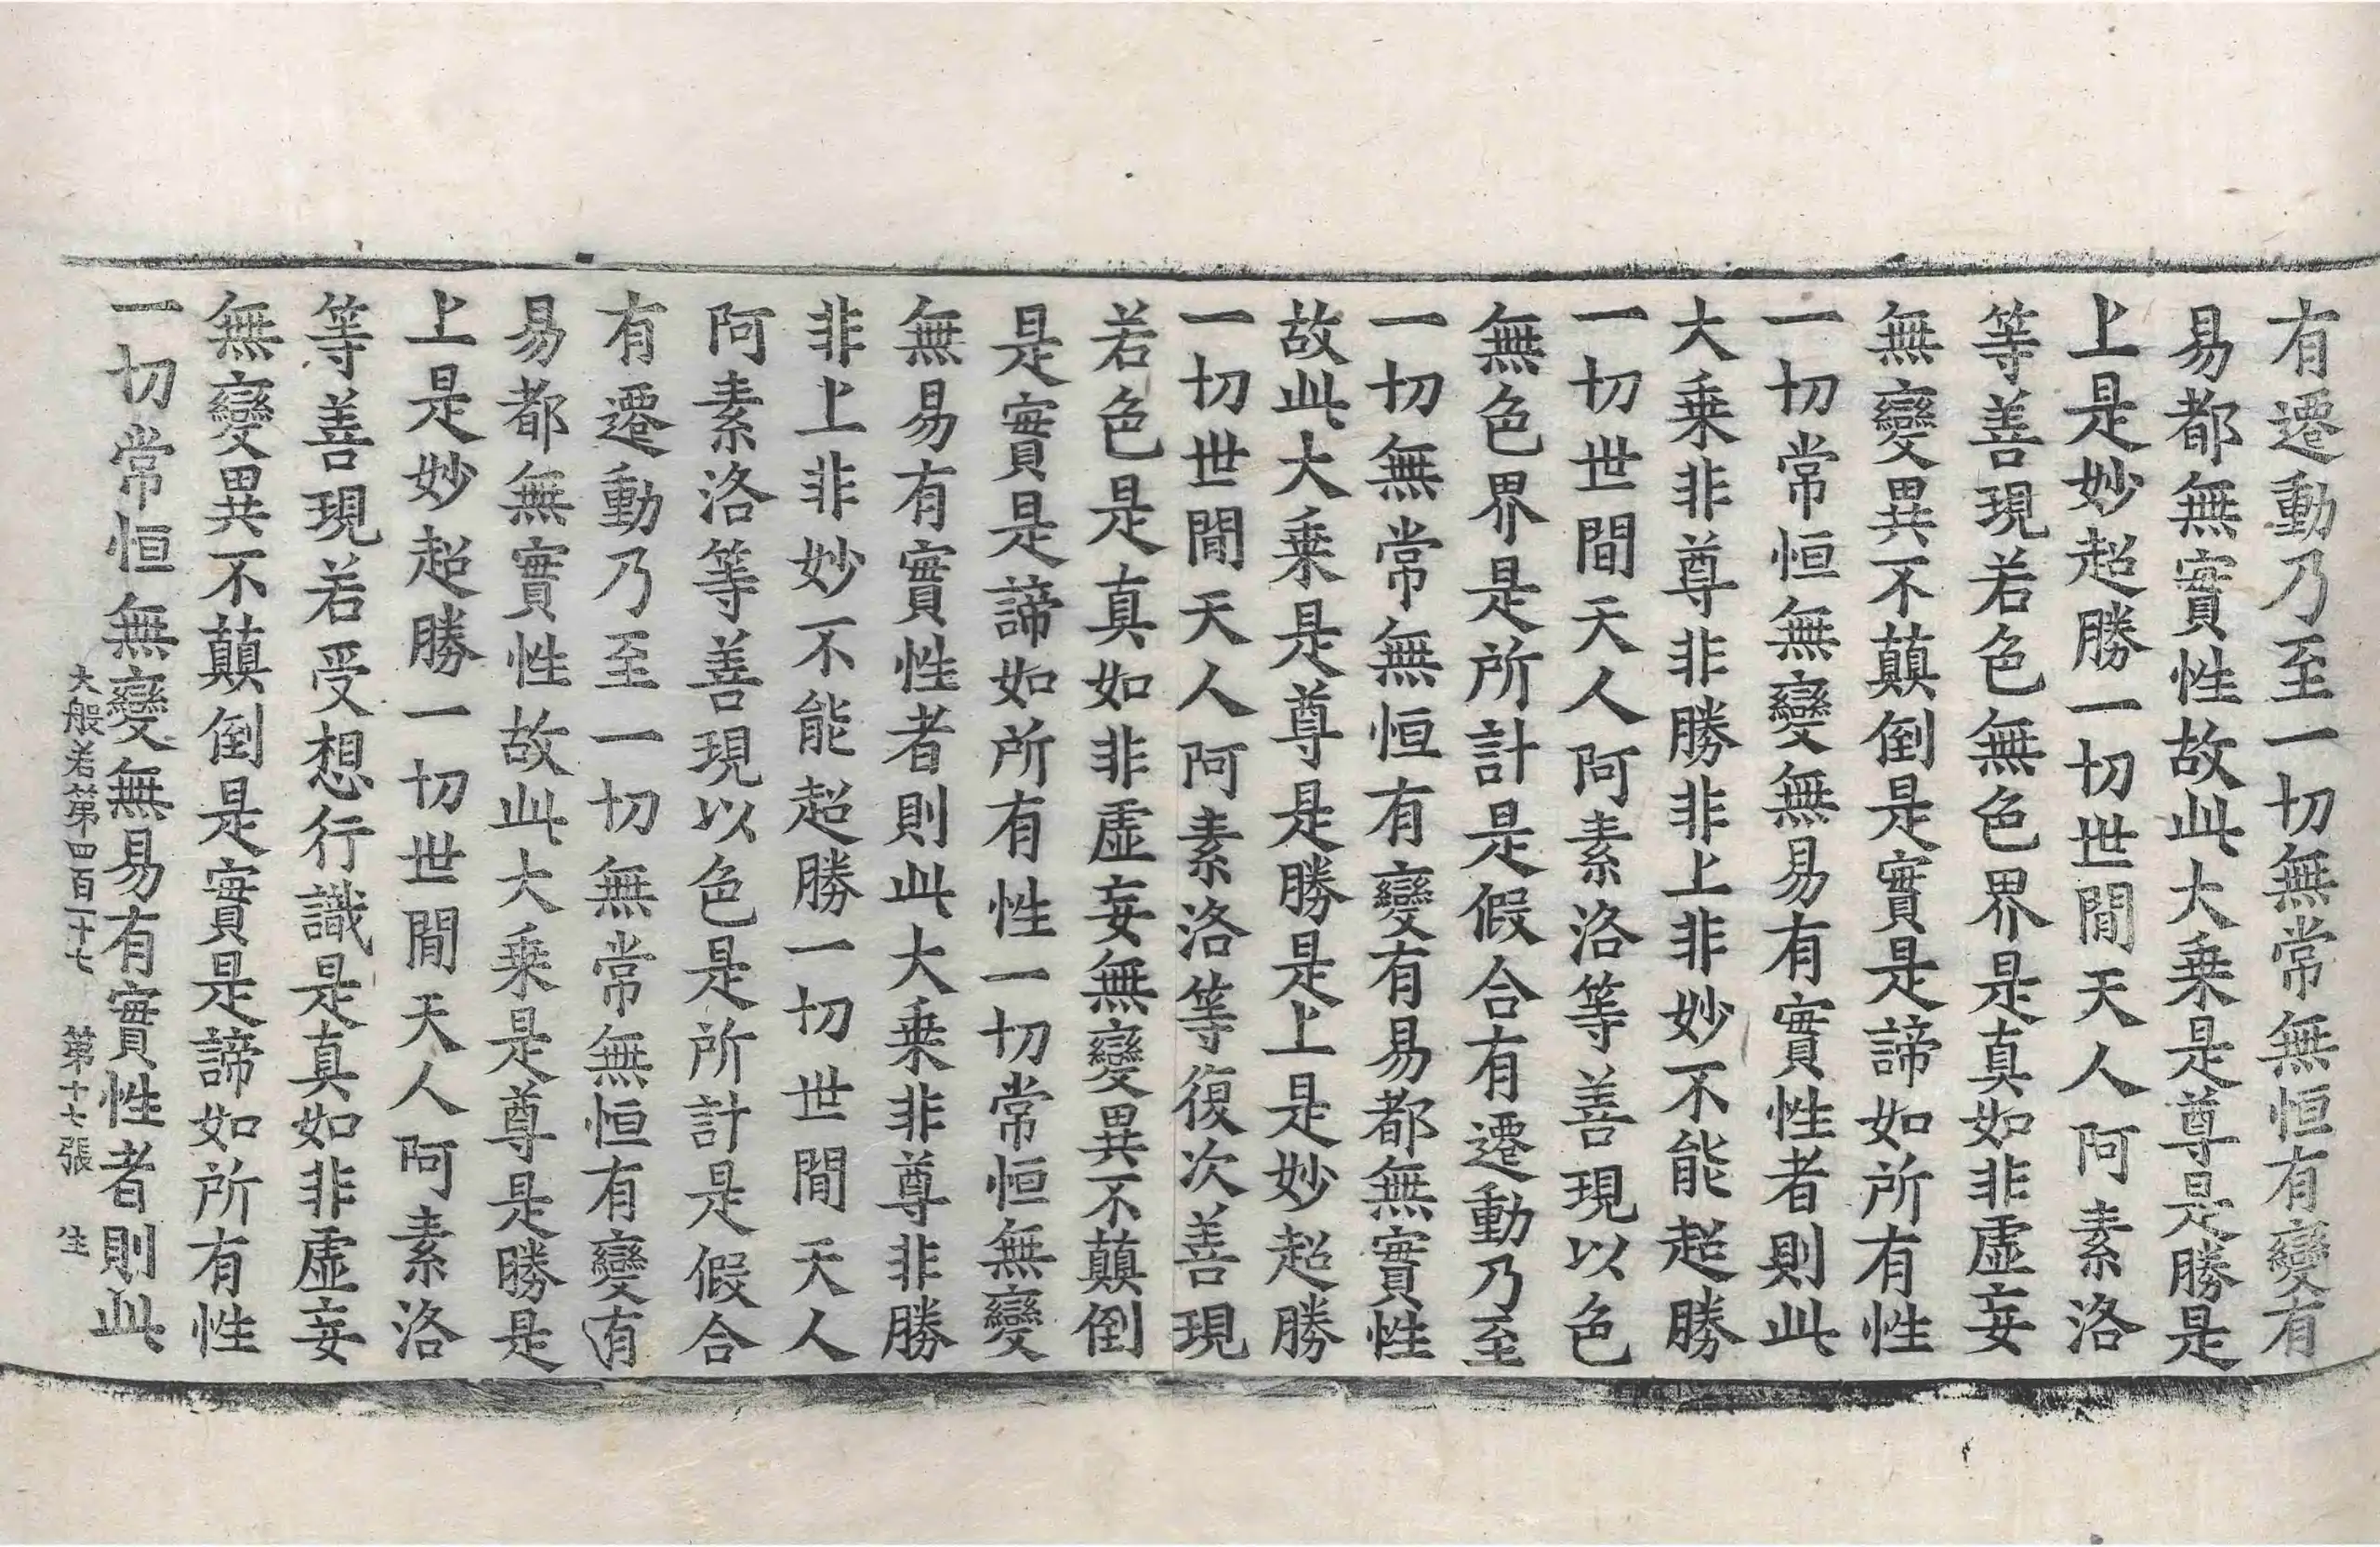 有遷動乃至一切無常無恒有變有
易都無實性故此大乗是尊是勝是
上是妙超勝一切世間天人阿素洛
等善現若色無色界是真如非虛妄
無變異不顛倒是實是諦如所有性
一切常恒無變無易有實性者則此
大乗非尊非勝非上非妙不能超勝
一切世間天人阿素洛等善現以色
無色界是所計是假合有遷動乃至
一切無常無恒有變有易都無實性
故此大乗是尊是勝是上是妙超勝
一切世間天人阿素洛等復次善現
若色是真如非虛妄無變異不顛倒
是實是諦如所有性一切常恒無變
無易有實性者則此大乗非尊非勝
非上非妙不能超勝一切世間天人
阿素洛等善現以色是所計是假合
有遷動乃至一切無常無恒有變有
易都無實性故此大乗是尊是勝是
上是妙超勝一切世間天人阿素洛
等善現若受想行識是真如非虛妄
無變異不顛倒是實是諦如所有性
一切常恒無變無易有實性者則此
大般若第四百一十七 第十七張 生